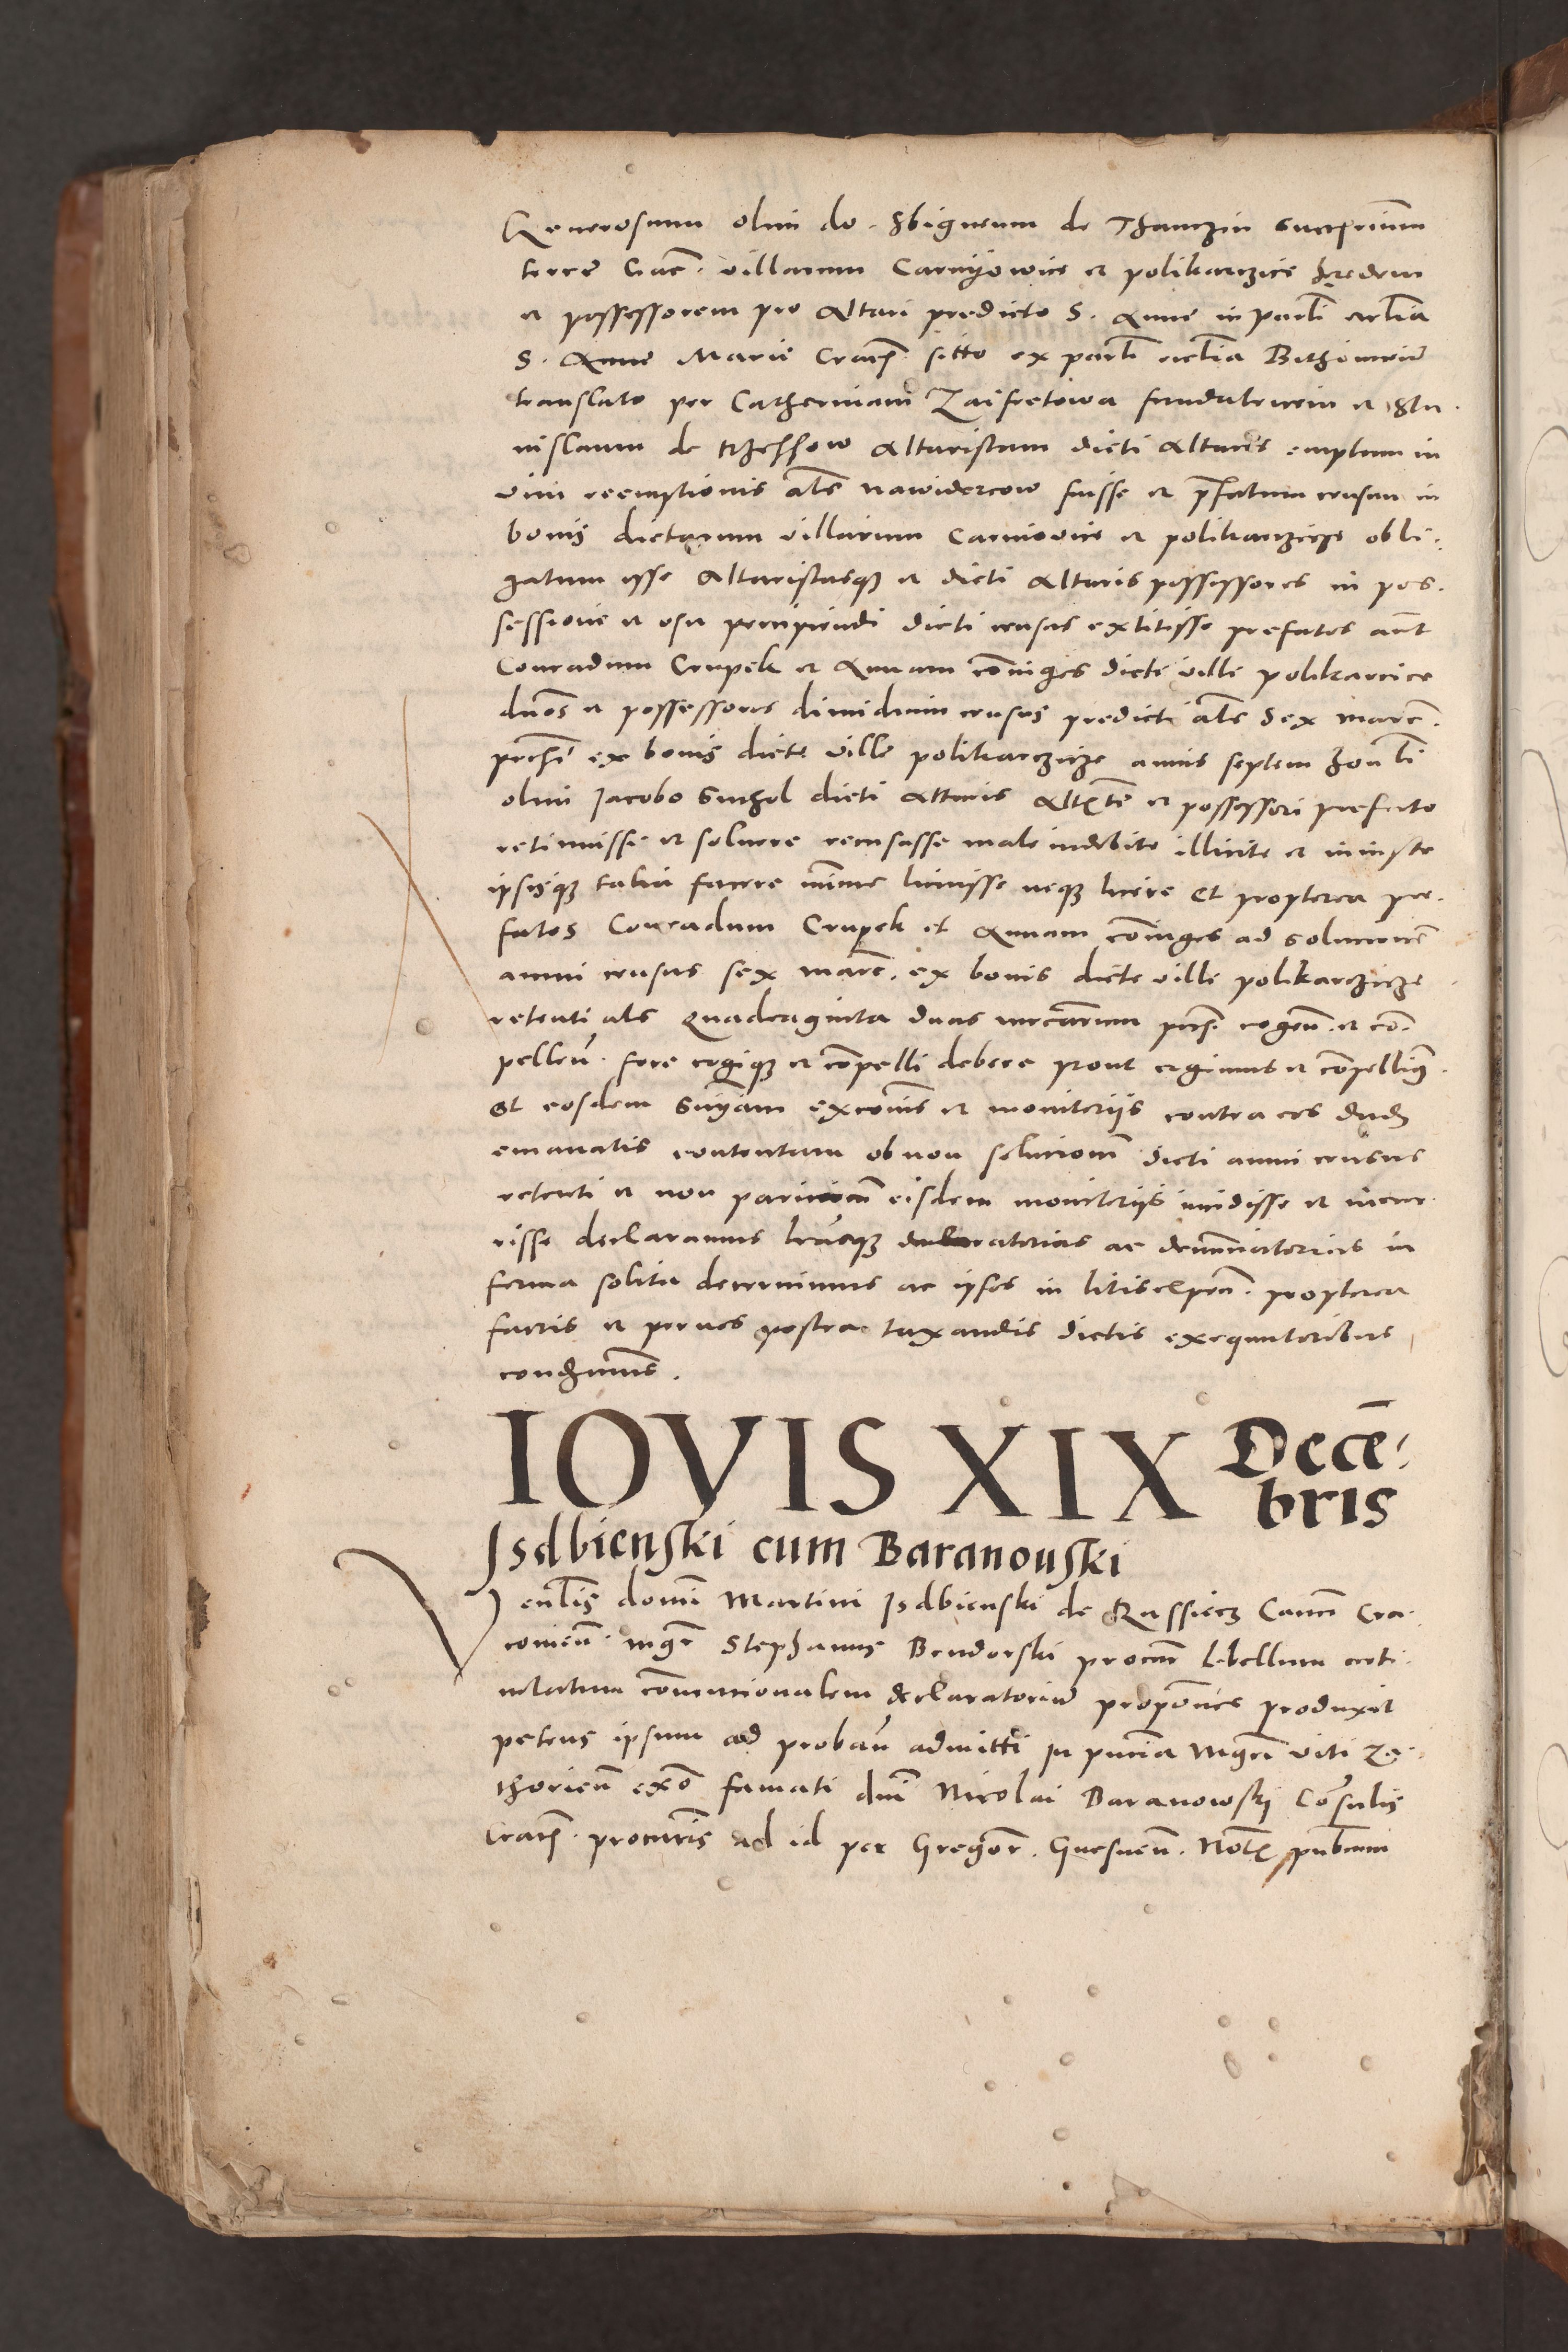 Generosum olim do. Sbigneum de Thanczin succamerarium
terre Crac. villarum Carnyowice et polikarczice heredem
et possessorem pro Altari predicto S. Anne in parli ecclia
S. Anne Marie Cracẽ sitto ex parli ecclia Bithomien
translato per Catherinam Zaifretowa fundatricem et Sta.
nislaum de Rzeschow Altaristam dicti Altaris emptum in
vim reemptionis als nawiderkow fuisse et p̃fatum censum in
bonis dictarum villarum Carniovice et polikarczicze obli.
gatum esse Altaristasq et dicti Altaris possessores in pos.
sessione et usu percipiendi dicti census extitisse prefatos aũt
Conradum Crupek et Annam cõiuges dicte ville polikarcice
dños et possessores dimidium census predicti als Sex marc.
ex bonis dicte ville polikarczicze annis septem
olim Jacobo dicti Altaris et possessori prefato
retinuisse et solvere recusasse male indebite illicite et iniuste
ipsisq talia facere mĩme licuisse neq licere Et propterea pre.
fatos Conradum Crupek et Annam cõiuges ad solucionẽ
annui census sex marc. ex bonis dicte ville polikarczicze
retenti als Quadraginta duas marcarum cogend. et cõ.
pellend. fore cogiq et cõpelli debere prout cogimus et cõpellim9.
Et eosdem sñiam excõnis et monitoriis contra eos dudũ
emanatis contentam ob non solucionẽ dicti annui census
retenti et non paricionẽ eisdem monitoriis incidisse et incur
risse declaramus lrãsq declaratorias ac denunciatorias in
forma solita decernimus ac ipsos in litis expen. propterea
factis et per nos postea taxandis dictis exequutoribus
condemnamus.
IOVIS XIX Decẽ
bris
Isdbienski cum Baranouski
Venlis domini Martini Isdbienski de Russiecz Canci Cra.
covien. mgr Stephanus Bendorski procur Libellum arti.
culatum cõvencionalem declaratoriũ proponẽs produxit
petens ipsum ad proband admitti In pñcia Mgri viti Za
thorien ex̃o famati dni Nicolai Baranowski Cõsulis
Cracẽ procuris ad id per Gregor. Gnesnen. Not. publicum